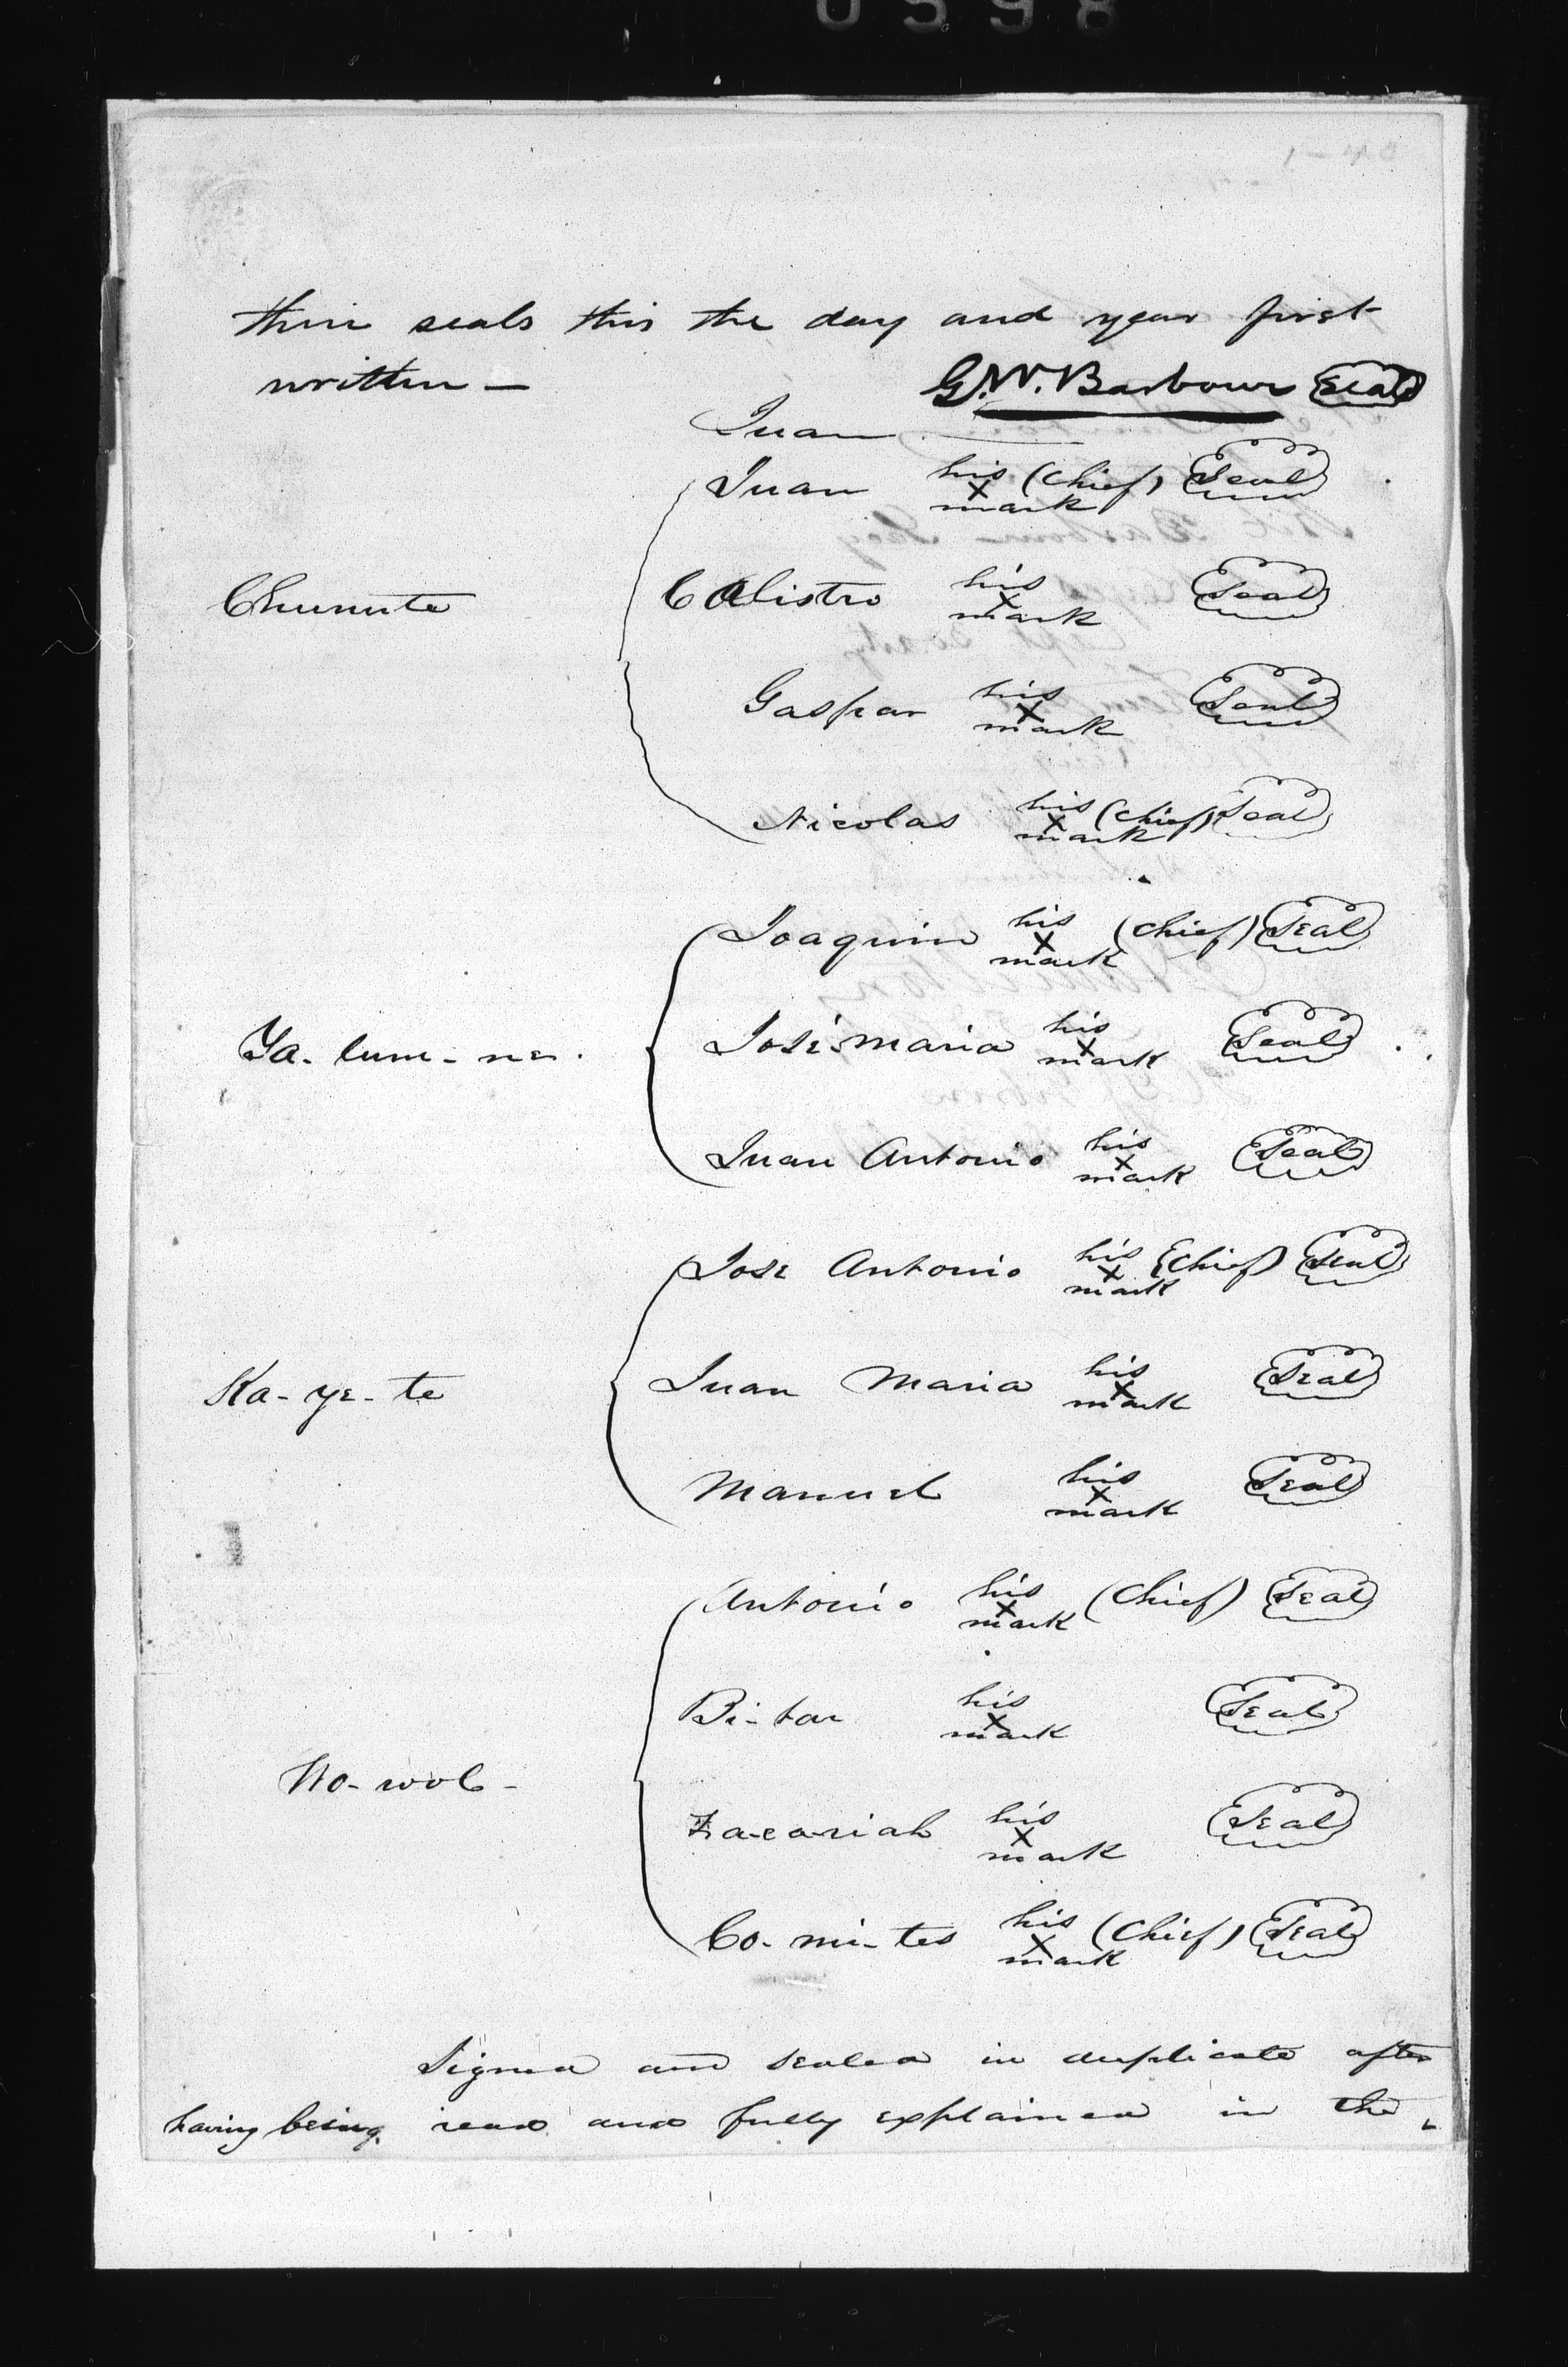 their seals this the day and year first
written —
G. W. Barbour Seal
Juan
Chunute
Juan his x mark (Chief) Seal
Calistro his x mark Seal
Gaspar his x mark Seal
Nicolas his x mark (Chief) Seal
Ya-lum-ne.
Joaquin his x mark (Chief) Seal
José Maria his x mark Seal
Juan Antonio his x mark Seal
Ka-ye-te
Jose Antonio his x mark (Chief) Seal
Juan Maria his x mark Seal
Manuel his x mark Seal
Wo-wol-
Antonio his x mark (Chief) Seal
Bi-tar his x mark Seal
Zacariah his x mark Seal
Co-mi-tes his x mark (Chief) Seal
Signed and sealed in duplicate after
having being read and fully explained in the